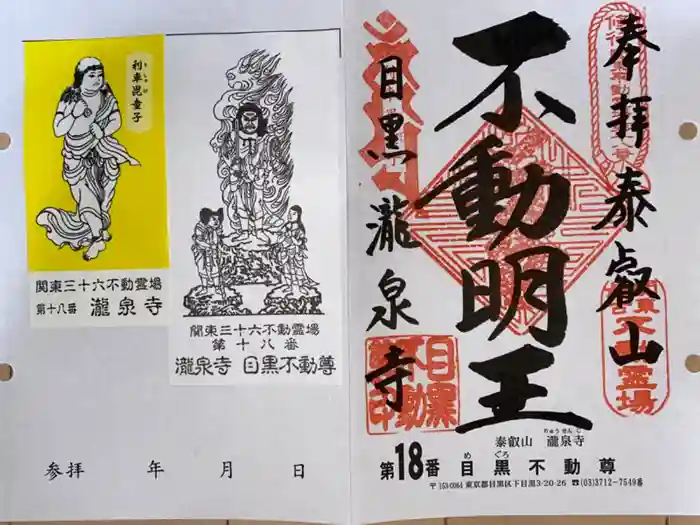 利車毘童子
りしゃびどうじ
関東三十六不動霊場
第十八番 瀧泉寺
関東三十六不動霊場
第十八番
瀧泉寺 目黒不動尊
参拝 年 月 日
奉拝 泰叡山
不動明王
目黒 瀧泉寺
目黒
不動
りゅうせんじ
泰叡山 瀧泉寺
めぐろ
第18番 目黒不動尊
〒153-0064 東京都目黒区下目黒3/20-26 ☎(03)3712-7549番